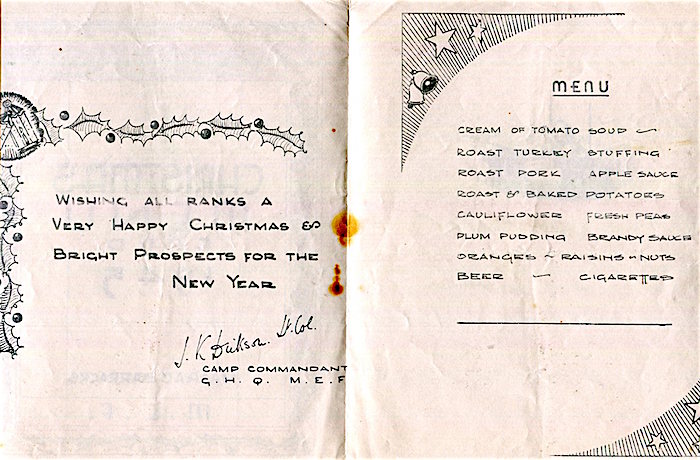 WISHING ALL RANKS A
VERY HAPPY CHRISTMAS &
BRIGHT PROSPECTS FOR THE
NEW YEAR
Lt. Col.
CAMP COMMANDANT
G. H. Q. M. E. F
MENU
CREAM OF TOMATO SOUP ~
ROAST TURKEY STUFFING
ROAST PORK APPLE SAUCE
ROAST & BAKED POTATOES
CAULIFLOWER FRESH PEAS
PLUM PUDDING BRANDY SAUCE
ORANGES ~ RAISINS ~ NUTS
BEER ~ CIGARETTES